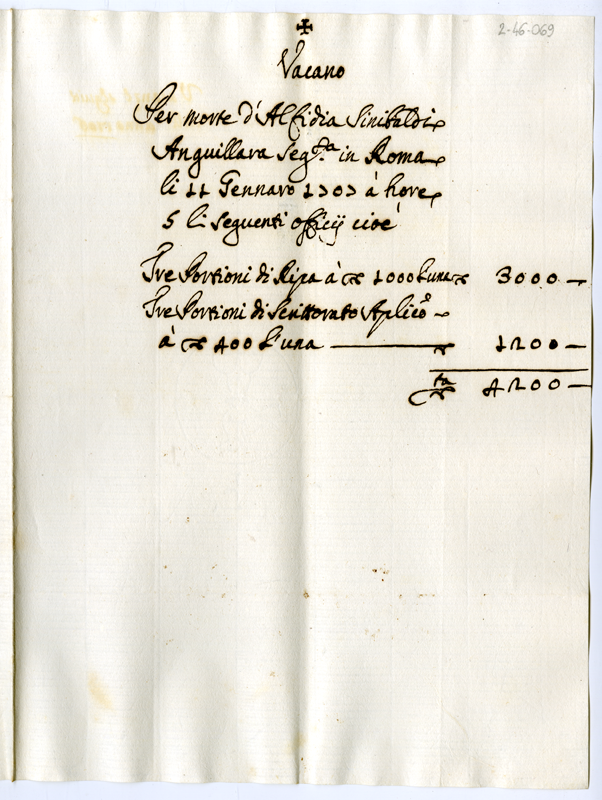 2-46-069
✠
Vacano
Per morte d'Alfidia Sinibaldi
Anguillara Seg.ta in Roma
li 11 Gennaro 1707 à hore
5 li seguenti officij cioè
Tre Portioni di Ripa à ∇ 1000 l'una ∇ 3000 —
Tre Portioni di Scrittorato Aplico
à ∇ 400 l'una ——— ∇ 1200 —
∇ta 4200 —